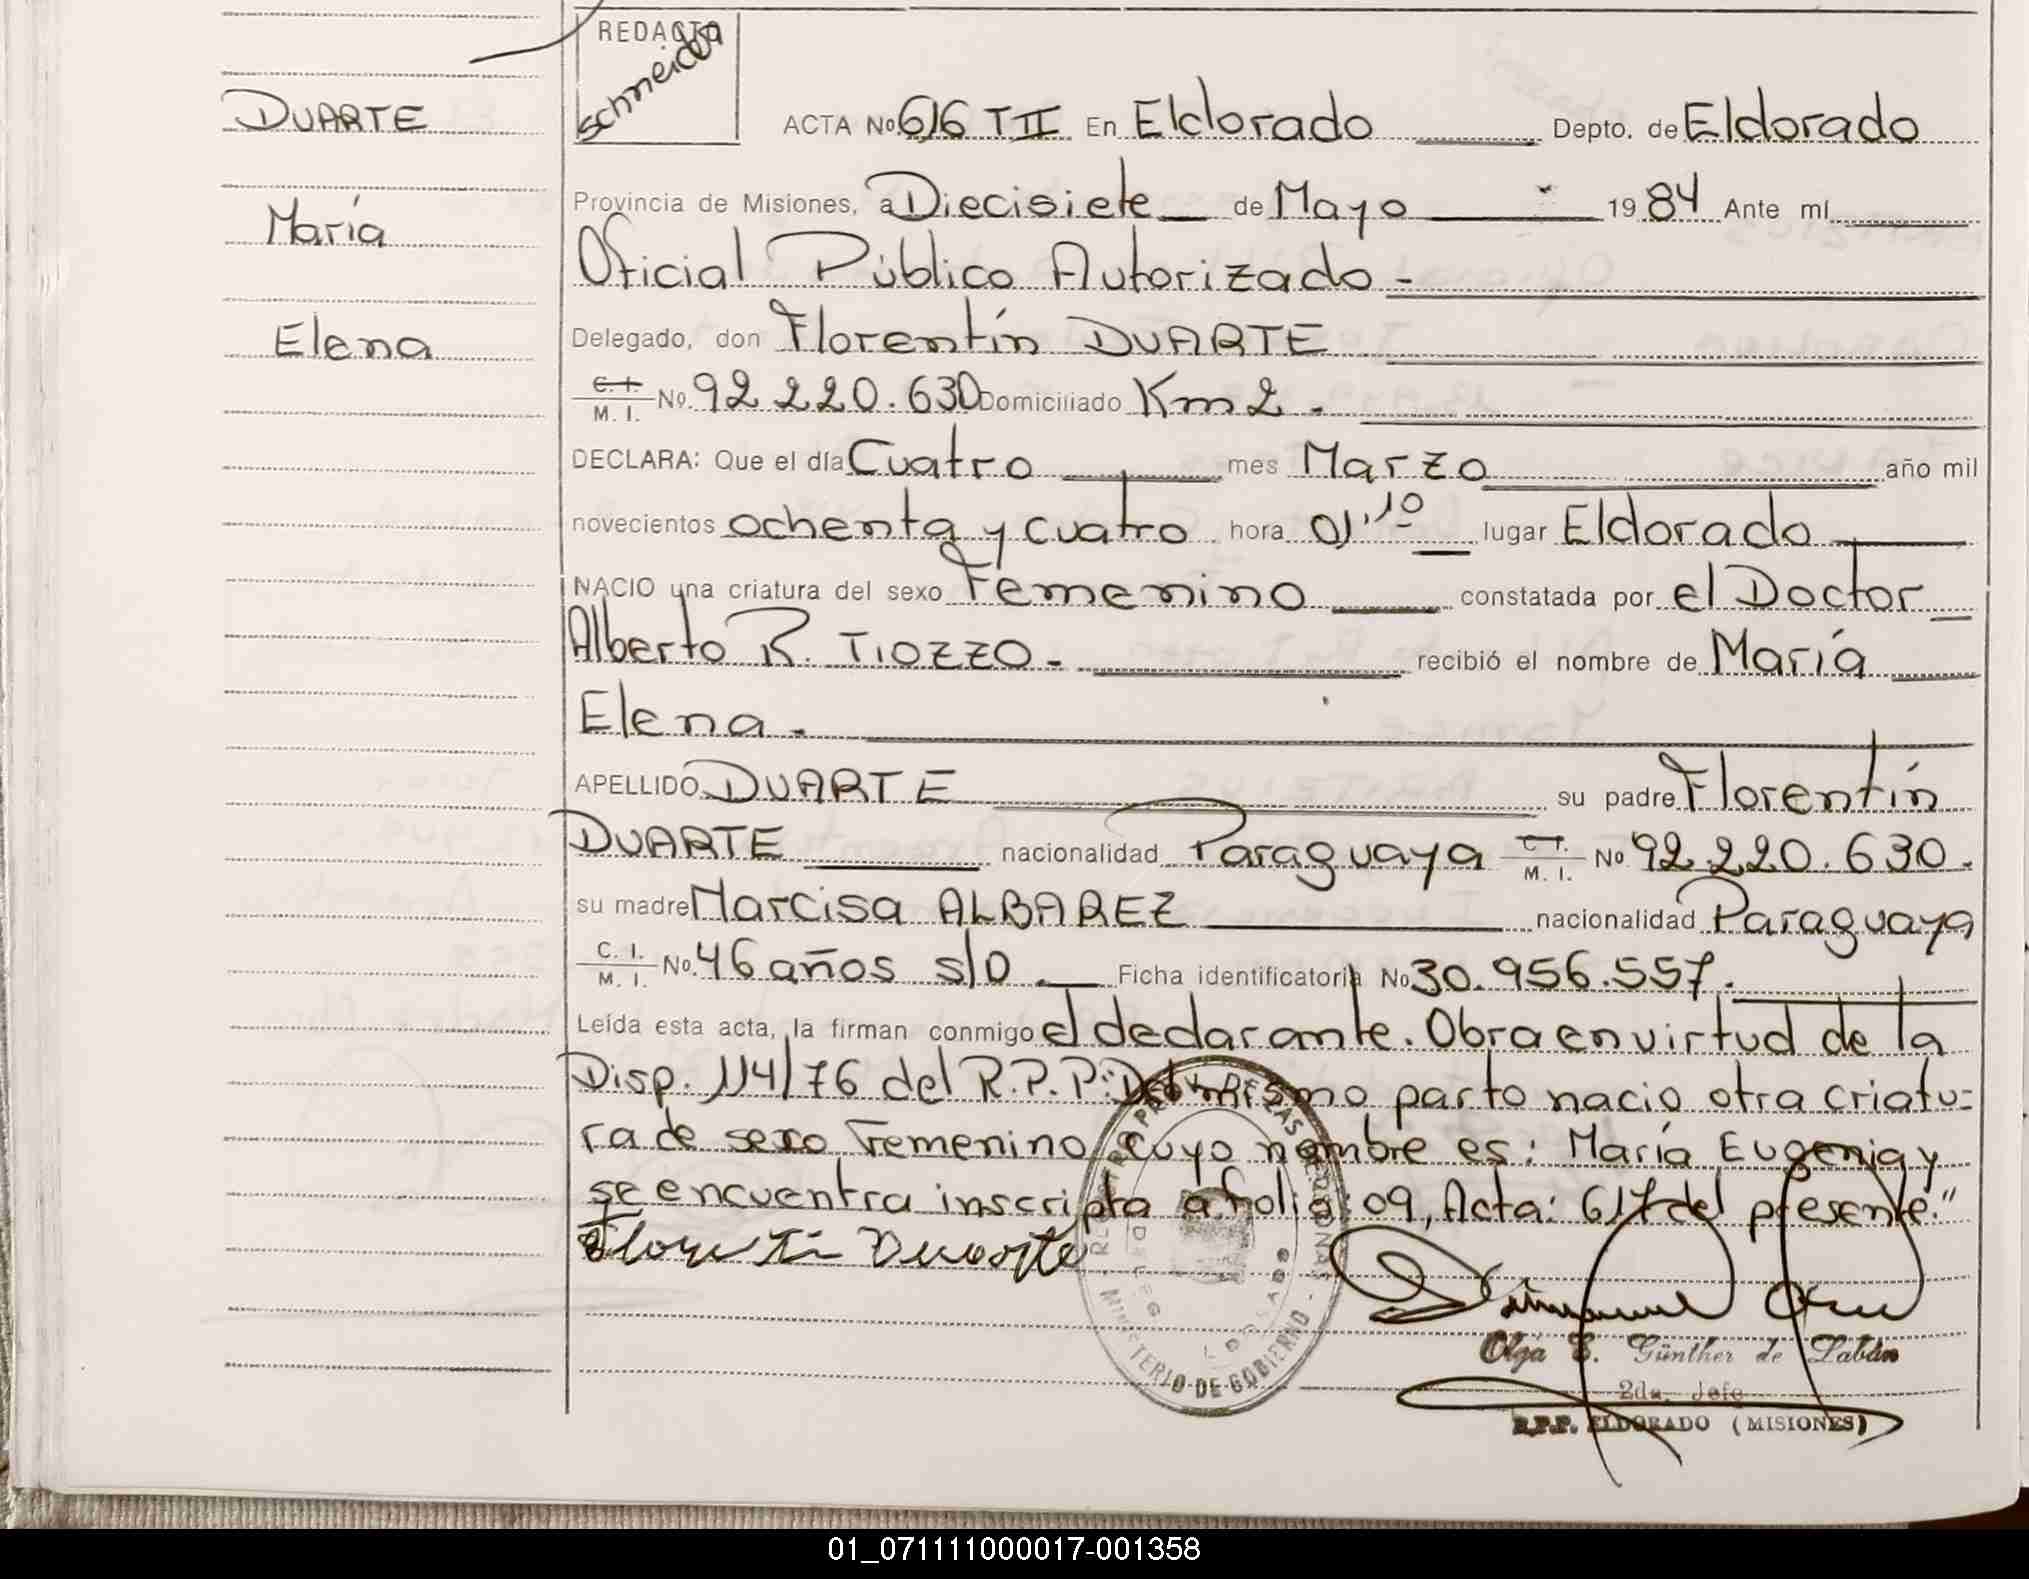 REDACTO
Schneider
DUARTE
María
Elena
ACTA No 616 T II En Eldorado Depto. de Eldorado
Provincia de Misiones, a Diecisiete de Mayo 1984 Ante mí
Oficial Público Autorizado -
Delegado, don Florentín DUARTE
C. I. / M. I. No 92.220.630 Domiciliado Km 2 -
DECLARA: Que el día Cuatro mes Marzo año mil
novecientos ochenta y cuatro hora 01'10 lugar Eldorado
NACIO una criatura del sexo Femenino constatada por el Doctor
Alberto R. TIOZZO - recibió el nombre de María
Elena -
APELLIDO DUARTE su padre Florentín
DUARTE nacionalidad Paraguaya C. I. / M. I. No 92.220.630.
su madre Marcisa ALBAREZ nacionalidad Paraguaya
C. I. / M. I. No 46 años s/D Ficha identificatoria No 30.956.557.
Leída esta acta, la firman conmigo el declarante. Obra en virtud de la
Disp. 114/76 del R.P.P: "Del mismo parto nacio otra criatu=
ra de sexo Femenino cuyo nombre es: María Eugenia y
se encuentra inscripta a folio: 09, Acta: 617 del presente."
Florentin Duarte
MINISTERIO DE GOBIERNO
Olga E. Günther de Labán
2da. Jefe
R.P.P. ELDORADO (MISIONES)
01_071111000017-001358